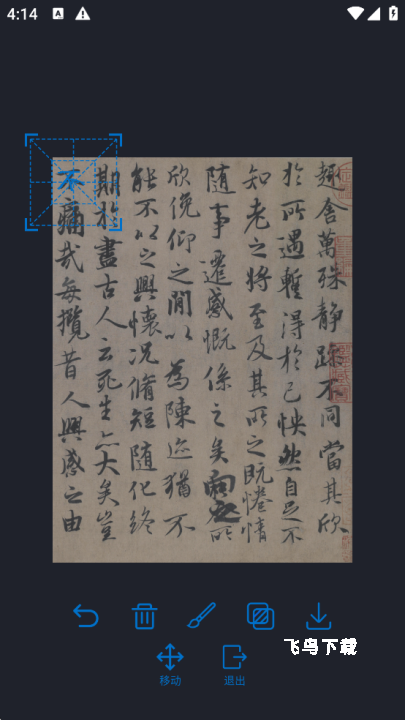 4:14
趣舍萬殊靜躁不同當其欣
於所遇暫得於己怏然自足不
知老之將至及其所之既惓情
隨事遷感慨係之矣向之所
欣俛仰之閒以為陳迹猶不
能不以之興懷況脩短隨化終
期於盡古人云死生亦大矣豈
不痛哉每攬昔人興感之由
飞鸟下载
移动
退出